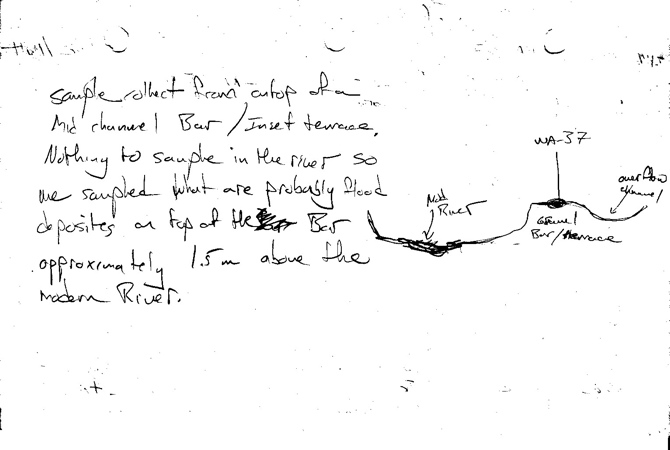 sample collect from atop of a
Mid channel Bar / Inset terrace.
Nothing to sample in the river so
we sampled what are probably flood
deposites on top of the Bar
approximately 1.5 m above the
modern River.
WA-37
overflow
channel
Mod
River
Gravel
Bar/terrace